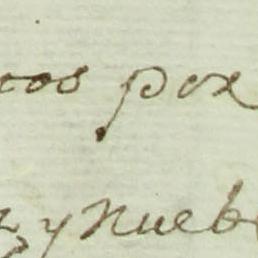 cos por
y nueb